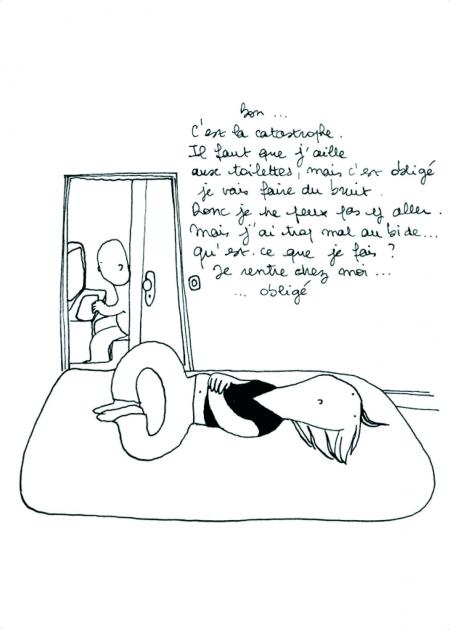 Bon ...
C'est la catastrophe.
Il faut que j'aille
aux toilettes, mais c'est obligé
je vais faire du bruit.
Donc je ne peux pas y aller.
Mais j'ai trop mal au bide...
qu'est-ce que je fais ?
Je rentre chez moi ...
... obligé